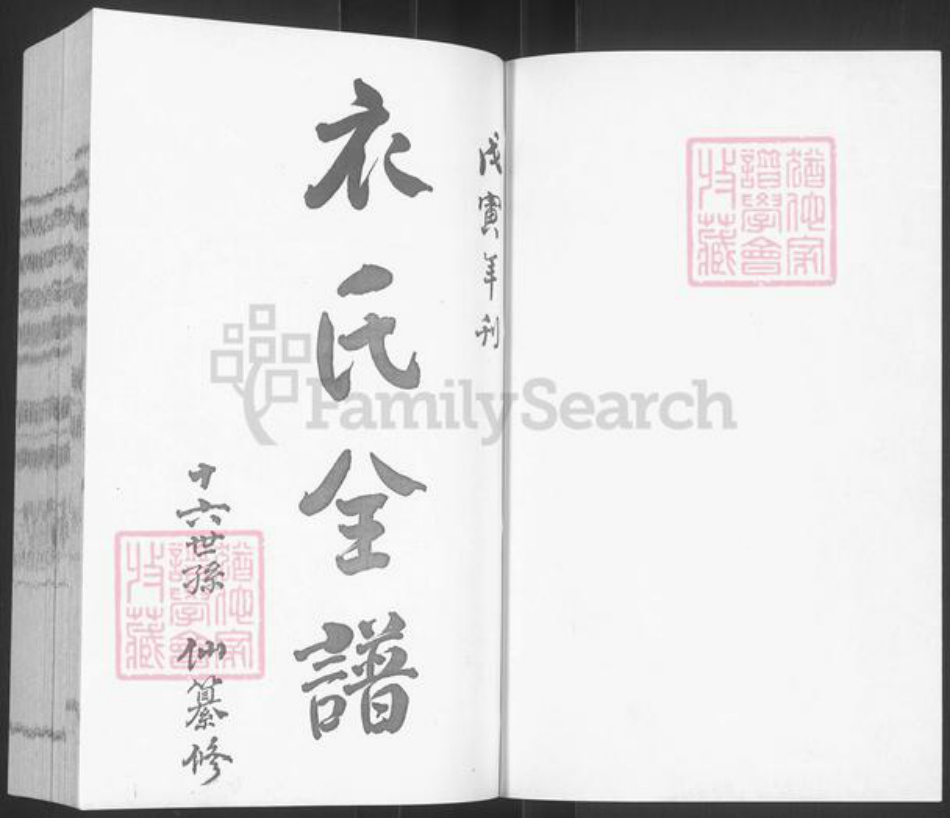 戊寅年刊
衣氏全譜
十六世孫 仙纂修
猶他家
譜學會
收藏
猶他家
譜學會
收藏
FamilySearch